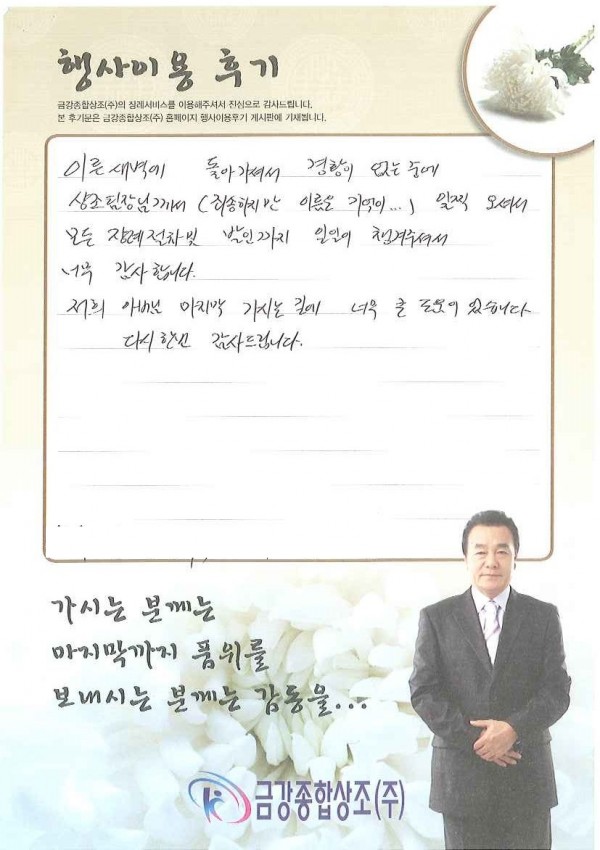 행사이용 후기
금강종합상조(주)의 장례서비스를 이용해주셔서 진심으로 감사드립니다.
본 후기문은 금강종합상조(주) 홈페이지 행사이용후기 게시판에 기재됩니다.
이른 새벽에 돌아가셔서 경황이 없는 중에
상조팀장님께서 (죄송하지만 이름을 기억이...) 일찍 오셔서
모든 장례절차 및 발인까지 일일이 챙겨주셔서
너무 감사합니다.
저희 아버님 마지막 가시는 길에 너무 큰 도움이 있습니다
다시한번 감사드립니다.
가시는 분께는
마지막까지 품위를
보내시는 분께는 감동을...
금강종합상조(주)